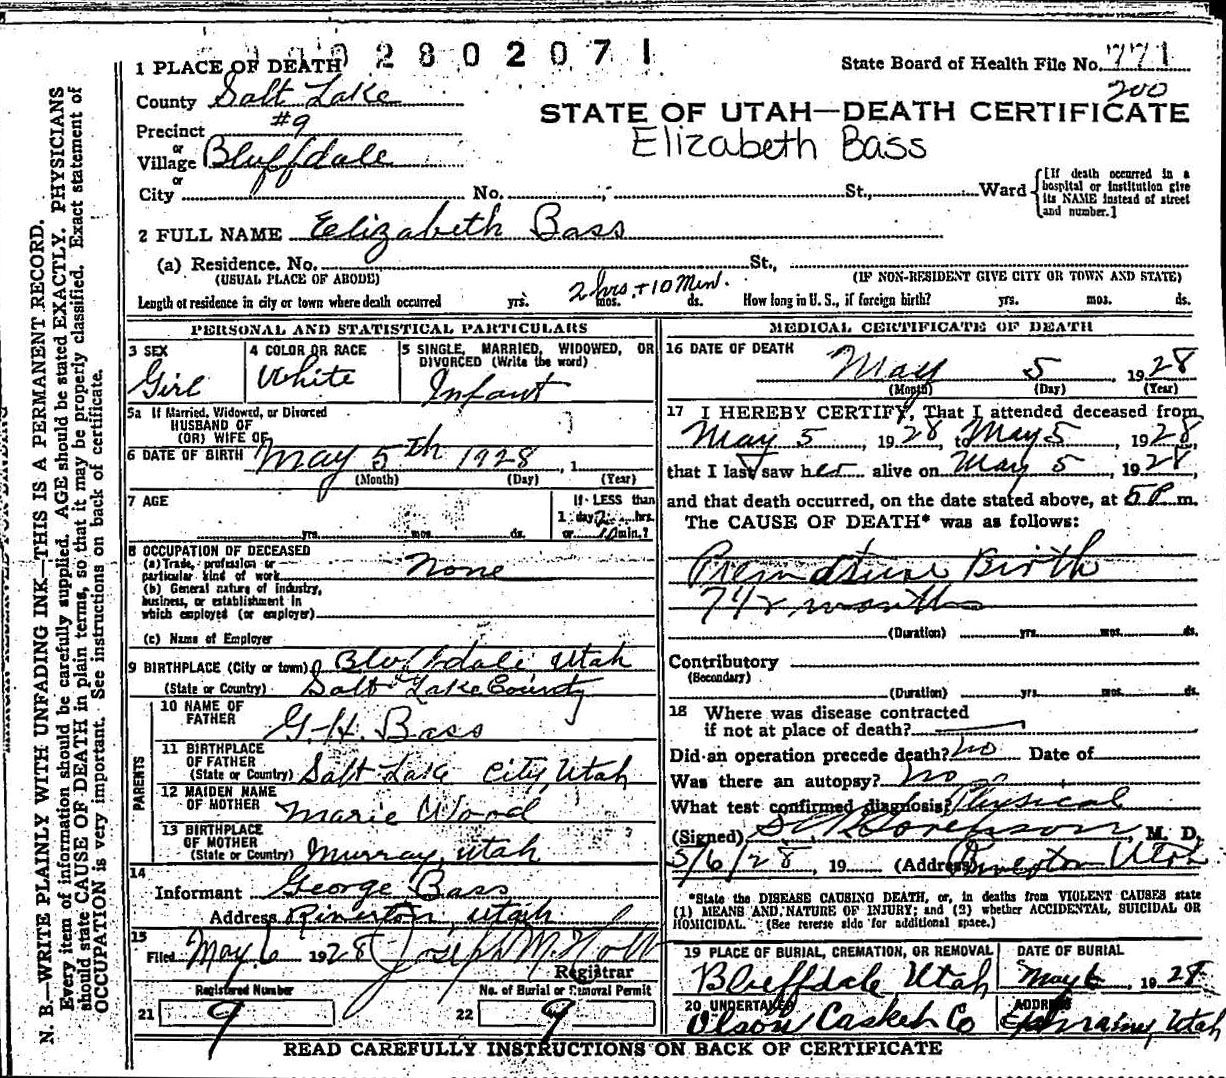 2 8 0 2 0 7 1
1 PLACE OF DEATH
State Board of Health File No. 771
200
County Salt Lake
STATE OF UTAH—DEATH CERTIFICATE
Precinct #9
Elizabeth Bass
or
Village Bluffdale
or
City No. St., Ward
[If death occurred in a
hospital or institution give
its NAME instead of street
and number.]
2 FULL NAME Elizabeth Bass
(a) Residence. No. St.,
(USUAL PLACE OF ABODE) (IF NON-RESIDENT GIVE CITY OR TOWN AND STATE)
Length of residence in city or town where death occurred yrs. mos. ds. 2 hrs. + 10 Min. How long in U. S., if foreign birth? yrs. mos. ds.
PERSONAL AND STATISTICAL PARTICULARS
3 SEX Girl
4 COLOR OR RACE White
5 SINGLE, MARRIED, WIDOWED, OR
DIVORCED (Write the word)
Infant
5a If Married, Widowed, or Divorced
HUSBAND OF
(OR) WIFE OF
6 DATE OF BIRTH May 5th 1928, 1
(Month) (Day) (Year)
7 AGE
yrs. mos. ds.
If LESS than
1 day, 2 hrs.
or 10 min.?
8 OCCUPATION OF DECEASED
(a) Trade, profession or
particular kind of work None
(b) General nature of industry,
business, or establishment in
which employed (or employer)
(c) Name of Employer
9 BIRTHPLACE (City or town) Bluffdale, Utah
(State or Country) Salt Lake County
PARENTS
10 NAME OF
FATHER G. H. Bass
11 BIRTHPLACE
OF FATHER
(State or Country) Salt Lake City, Utah
12 MAIDEN NAME
OF MOTHER Marie Wood
13 BIRTHPLACE
OF MOTHER
(State or Country) Murray, Utah
14
Informant George Bass
Address Riverton, Utah
15
Filed May 6 1928 Joseph M. Holt
Registrar
Registered Number
21 9
No. of Burial or Removal Permit
22 9
MEDICAL CERTIFICATE OF DEATH
16 DATE OF DEATH
May 5, 1928
(Month) (Day) (Year)
17 I HEREBY CERTIFY, That I attended deceased from
May 5, 1928, to May 5, 1928,
that I last saw her alive on May 5, 1928,
and that death occurred, on the date stated above, at 5 P m.
The CAUSE OF DEATH* was as follows:
Premature Birth
7 1/2 months
(Duration) yrs. mos. ds.
Contributory
(Secondary)
(Duration) yrs. mos. ds.
18 Where was disease contracted
if not at place of death?
Did an operation precede death? No Date of
Was there an autopsy? No
What test confirmed diagnosis? Physical
(Signed) Sorenson, M. D.
5/6/28, 19 (Address) Riverton Utah
*State the DISEASE CAUSING DEATH, or, in deaths from VIOLENT CAUSES state
(1) MEANS AND NATURE OF INJURY; and (2) whether ACCIDENTAL, SUICIDAL OR
HOMICIDAL. (See reverse side for additional space.)
19 PLACE OF BURIAL, CREMATION, OR REMOVAL
Bluffdale, Utah
DATE OF BURIAL
May 6, 1928
20 UNDERTAKER
Olson Casket Co
ADDRESS
Ephraim, Utah
READ CAREFULLY INSTRUCTIONS ON BACK OF CERTIFICATE
N. B.—WRITE PLAINLY WITH UNFADING INK—THIS IS A PERMANENT RECORD.
Every item of information should be carefully supplied. AGE should be stated EXACTLY. PHYSICIANS
should state CAUSE OF DEATH in plain terms, so that it may be properly classified. Exact statement of
OCCUPATION is very important. See instructions on back of certificate.